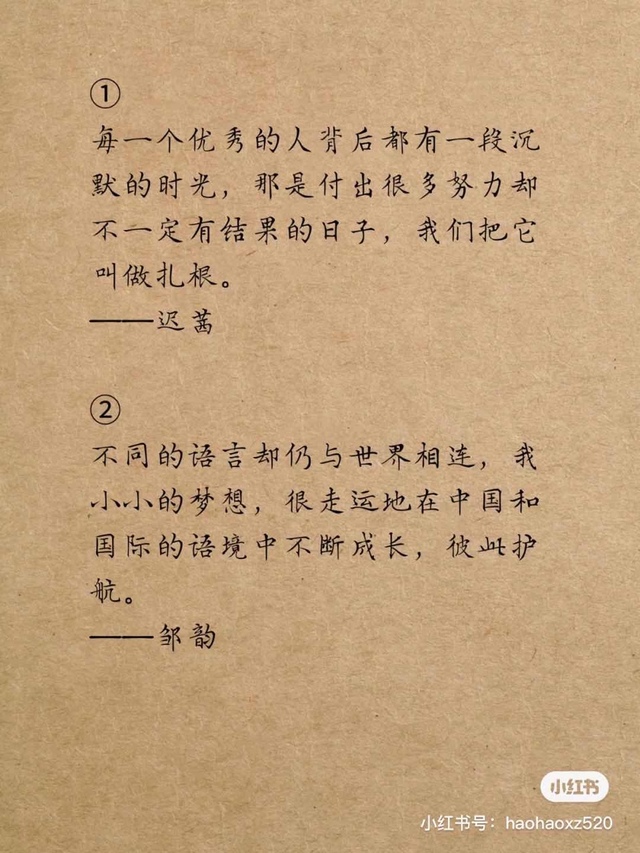 ①
每一个优秀的人背后都有一段沉
默的时光，那是付出很多努力却
不一定有结果的日子，我们把它
叫做扎根。
——迟茜
②
不同的语言却仍与世界相连，我
小小的梦想，很走运地在中国和
国际的语境中不断成长，彼此护
航。
——邹韵
小红书
小红书号：haohaoxz520